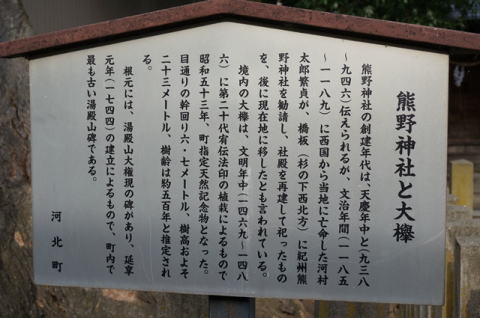 熊野神社と大欅
熊野神社の創建年代は、天慶年中と(九三八
～九四六)伝えられるが、文治年間(一一八五
～一一八九)に西国から当地に土着した河村
太郎繁貞が、橋板(杉の下西北方)に紀州熊
野神社を勧請し、社殿を再建して祀ったもの
を、後に現在地に移したとも言われている。
境内の大欅は、文明年中(一四六九～一四八
六)に第二十代宥伝法印の植栽によるもので
昭和五十三年、町指定天然記念物となった。
目通りの幹回り六・七メートル、樹高およそ
二十三メートル、樹齢は約五百年と推定され
る。
根元には、湯殿山大権現の碑があり、延享
元年(一七四四)の建立によるもので、町内で
最も古い湯殿山碑である。
河北町